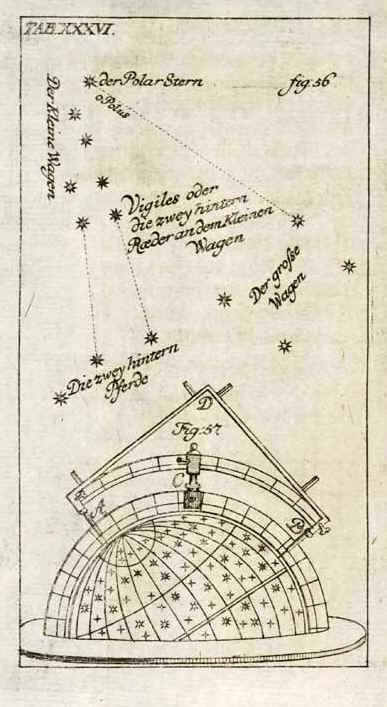 TAB. XXXVI.
der Polar Stern
fig: 56
o Polus
Der Kleine Wagen
Vigiles oder
die zwey hintern
Ræder an dem Kleinen
Wagen
Der große
Wagen
Die zwey hintern
Pferde
D
Fig: 57
C
A
B